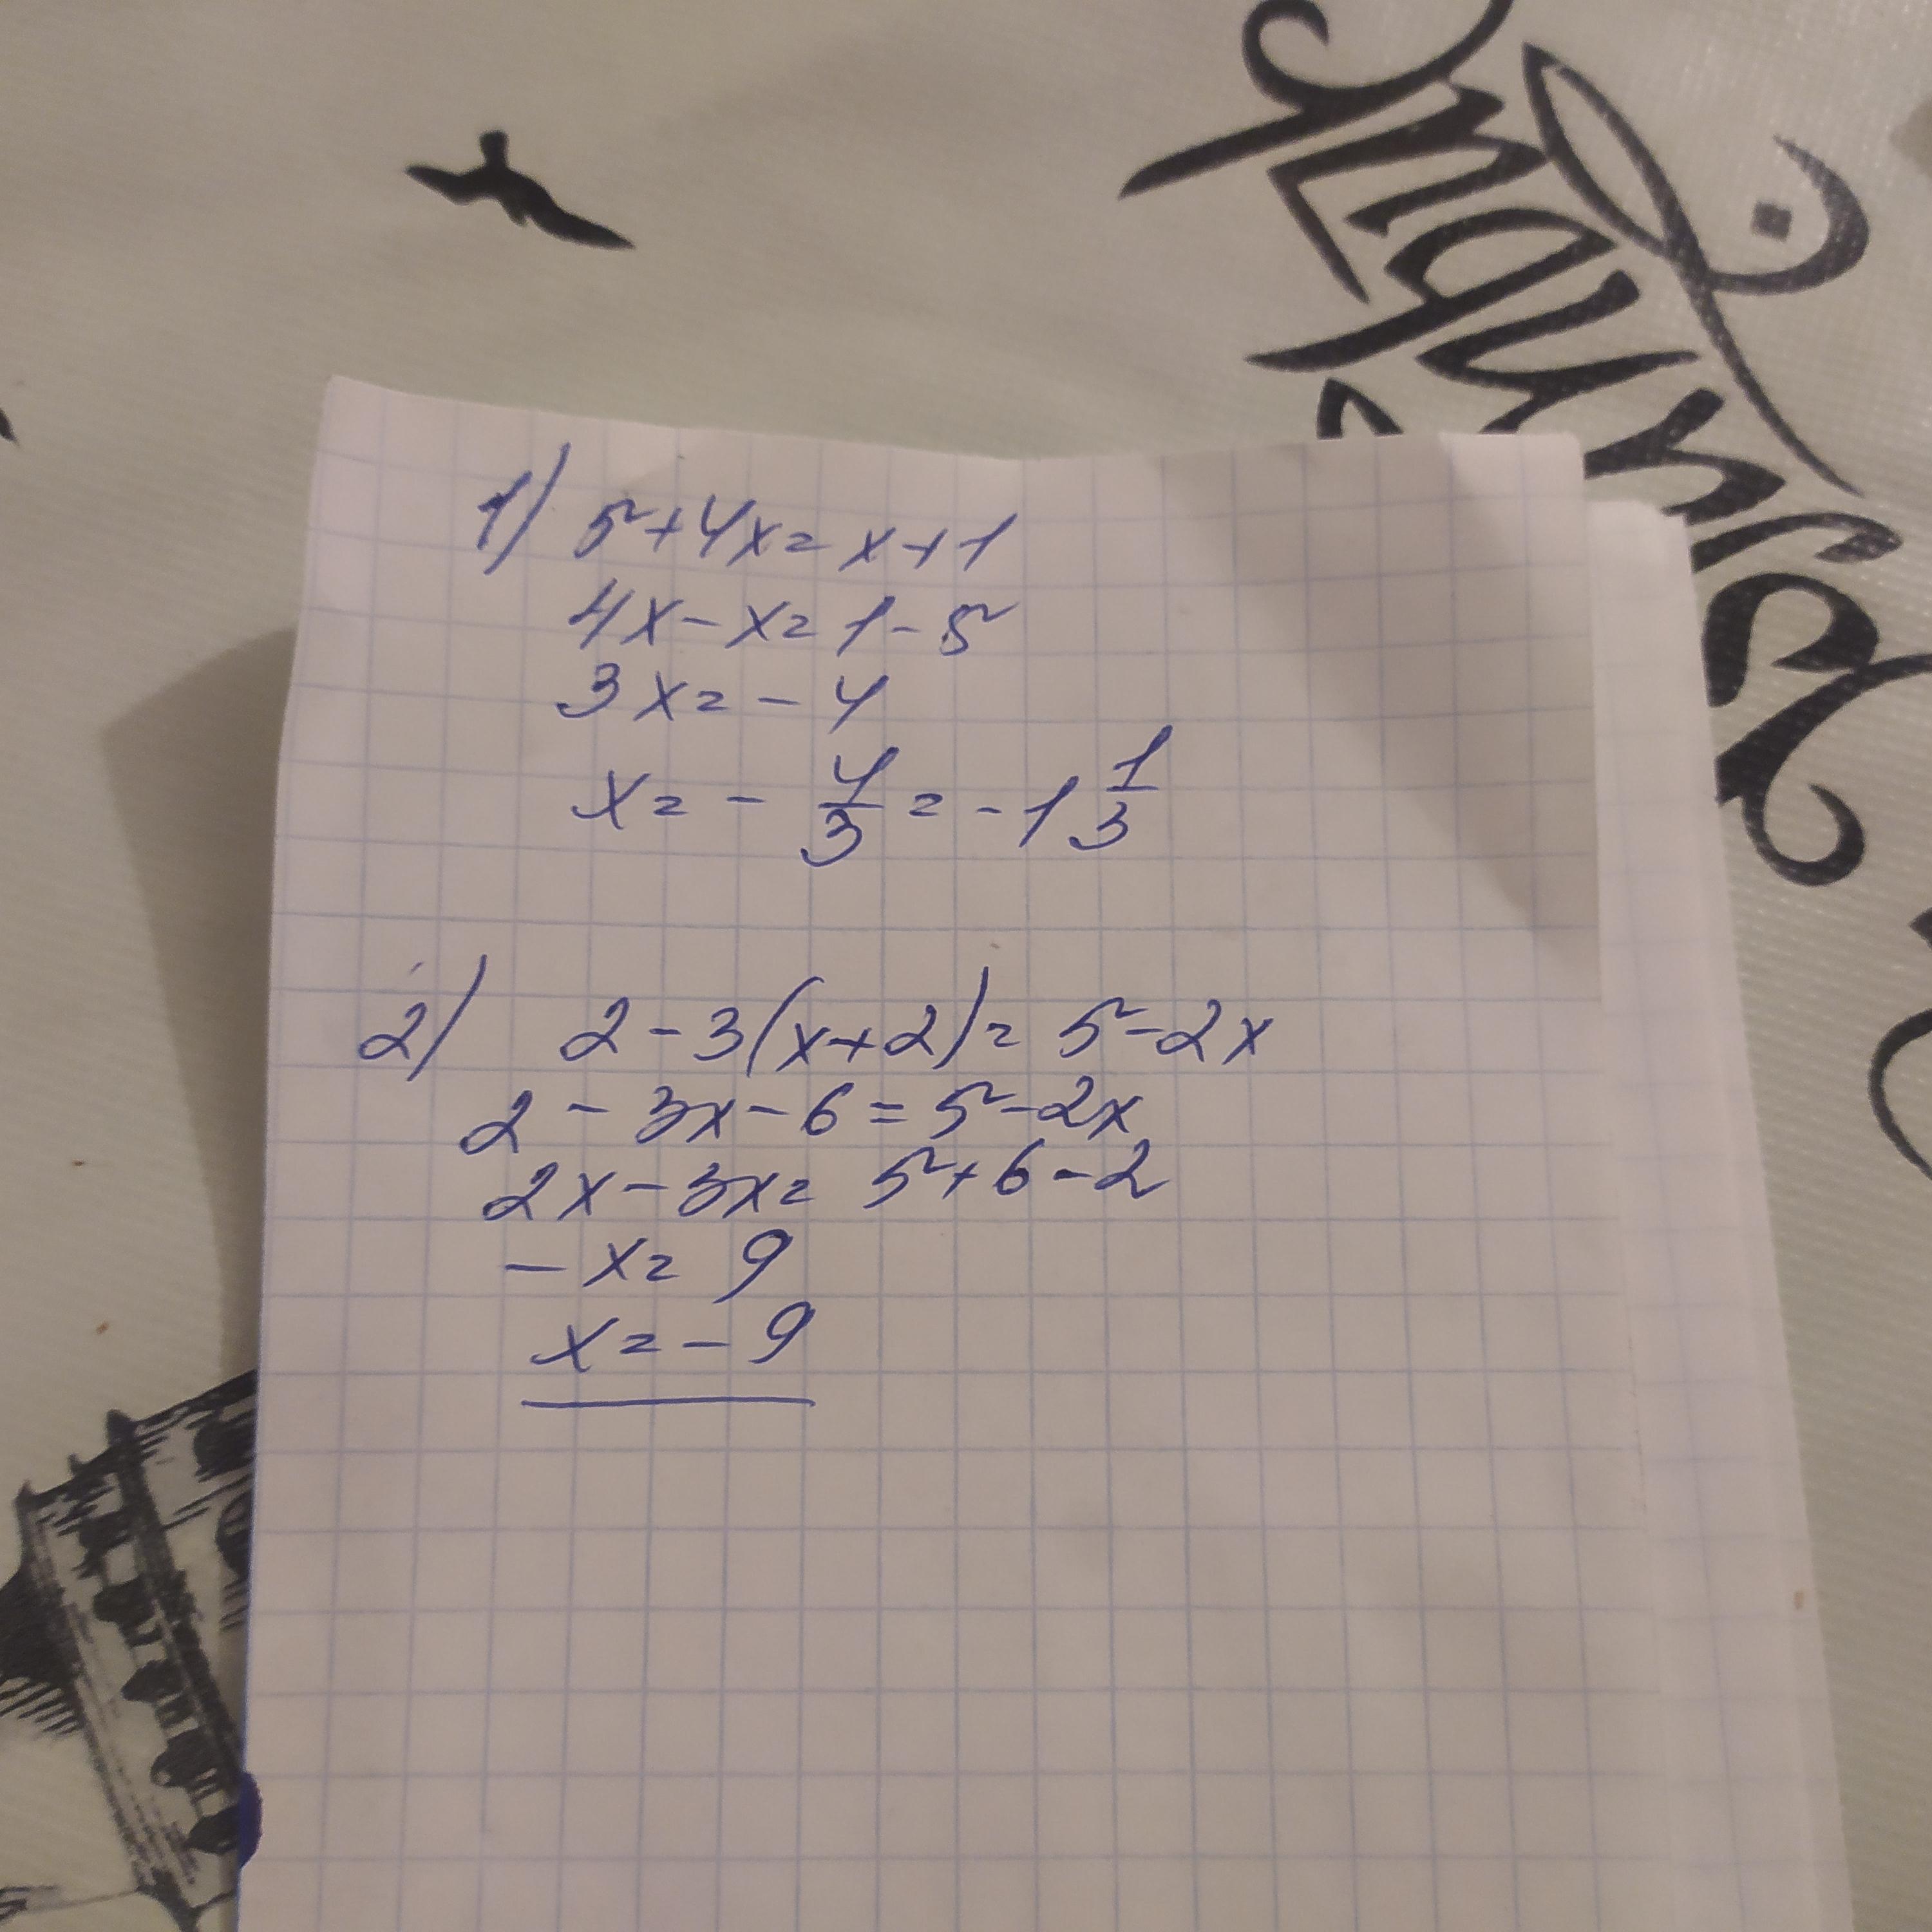 1) 5+4x=x+1
4x-x=1-5
3x=-4
x=-4/3=-1 1/3
2) 2-3(x+2)=5-2x
2-3x-6=5-2x
2x-3x=5+6-2
-x=9
x=-9